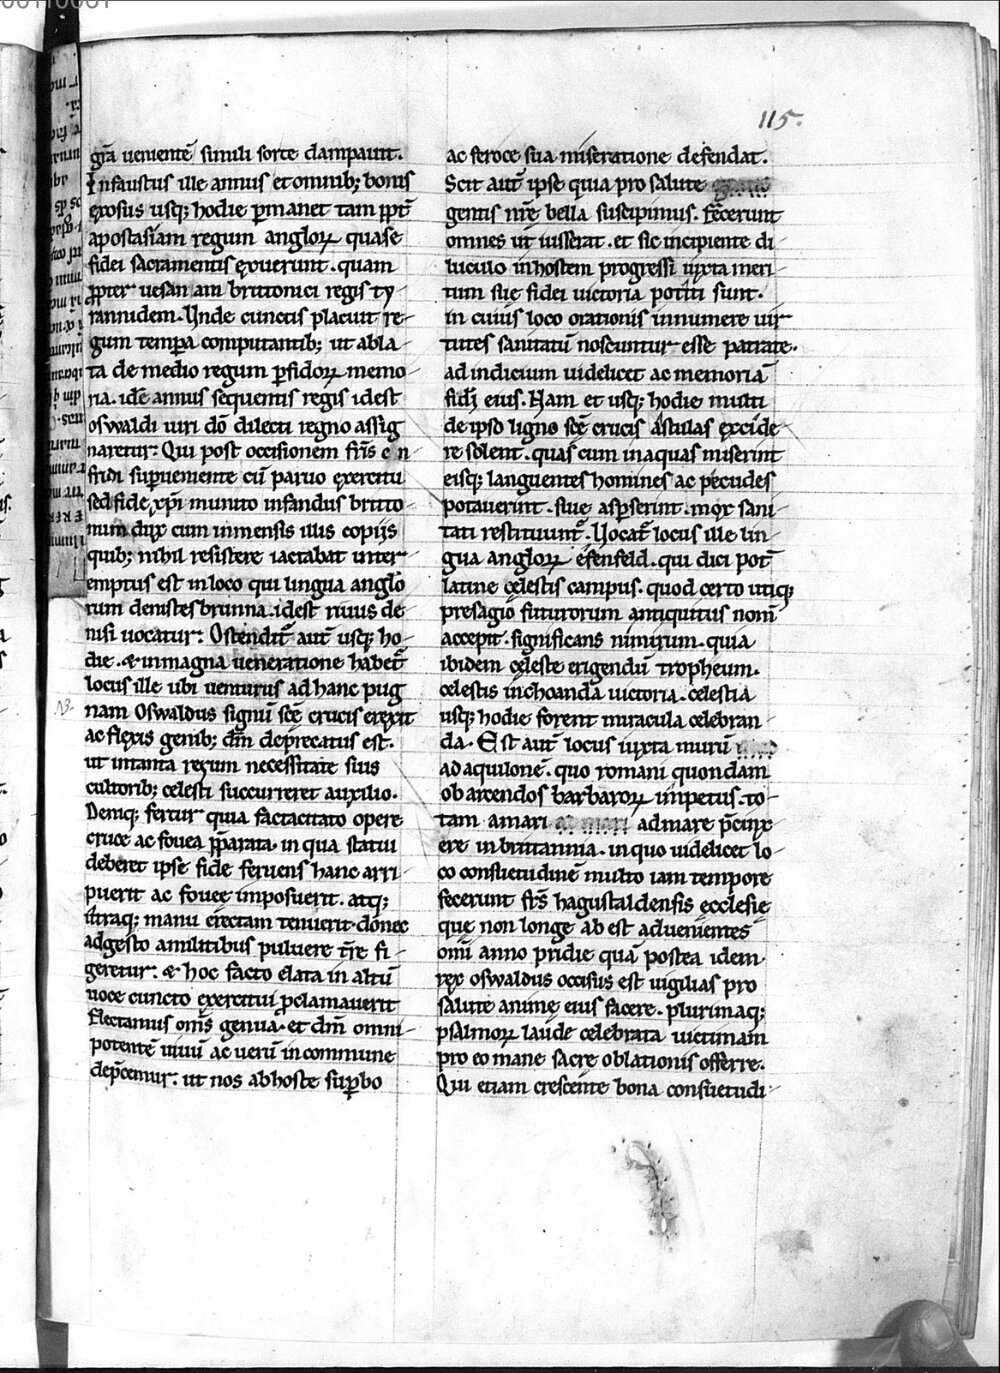 115.
gr̄a uenientē simili sorte dampauit.
Infaustus ille annus et omnib; bonis
exosus usq; hodie ꝑmanet tam ꝓpt̄
apostasiam regum angloꝝ quase
fidei sacramentis exuerunt. quam
ꝓpter uesan am brittonici regis ty
rannidem. Unde cunctis placuit re-
gum temꝑa computantib; ut abla-
ta de medio regum ꝑfidoꝝ memo-
ria. idē annus sequentis regis idest
oswaldi uiri dō dilecti regno assig
naretur: Qui post occisionem fr̄is en
fridi suꝑueniente cū paruo exercitu
sed fide xp̄i munito infandus britto-
num dux cum inmensis illis copiis
quib; nihil resistere iactabat inter-
emptus est in loco qui lingua anglo
rum denisesbrunna. idest riuus de-
nisi uocatur: Ostendit̄ aut̄ usq; ho-
die. & in magna ueneratione habet̄
locus ille ubi uenturus ad hanc pug
nam Oswaldus signū scē crucis erexit
ac flexis genib; dm̄ dep̄catus est.
ut in tanta rerum necessitate suis
cultorib; celesti succurreret auxilio.
Deniq; fertur quia facta citato opere
cruce ac fouea p̄parata. in qua statui
deberet ipse fide feruens hanc arri-
puerit ac fouee imposuerit. atq;
utraq; manu erectam tenuerit. donec
adgesto a militibus puluere tr̄e fi-
geretur: & hoc facto elata in altū
uoce cuncto exercitui ꝓclamauerit
flectamus om̄s genua. et dm̄ omni-
potentē uiuū ac uerū in commune
dep̄cemur. ut nos ab hoste suꝑbo
ac feroce sua miseratione defendat.
Scit aut̄ ipse quia pro salute
gentis nr̄e bella suscipimus. Fecerunt
omnes ut iusserat. et sic incipiente di-
luculo in hostem progressi iuxta meri-
tum sue fidei uictoria potiti sunt.
in cuius loco orationis innumere uir
tutes sanitatū noscuntur esse patrate.
ad indicium uidelicet ac memoriā
fidei eius. Nam et usq; hodie multi
de ipso ligno scē crucis astulas excide-
re solent. quas cum in aquas miserint
eisq; languentes homines ac pecudes
potauerint. siue asꝑserint. mox sani-
tati restituunt̄. Uocat̄ locus ille lin-
gua angloꝝ efenfeld. qui dici pot̄
latine celestis campus. quod certo utiq;
presagio futurorum antiquitus nom̄
accepit. significans nimirum. quia
ibidem celeste erigendū tropheum.
celestis inchoanda uictoria. celestia
usq; hodie forent miracula celebran-
da. Est aut̄ locus iuxta murū
ad aquilonē. quo romani quondam
ob arcendos barbaroꝝ impetus. to-
tam amari ad mare p̄cinx
ere in brittannia. in quo uidelicet lo-
co consuetudinē multo iam tempore
fecerunt fr̄s hagustaldensis ecclesie
que non longe ab est aduenientes
om̄i anno pridie quā postea idem
rex oswaldus occisus est uigilias pro
salute anime eius facere. plurimaq;
psalmoꝝ laude celebrata uictimam
pro eo mane sacre oblationis offerre.
Qui etiam crescente bona consuetudi-